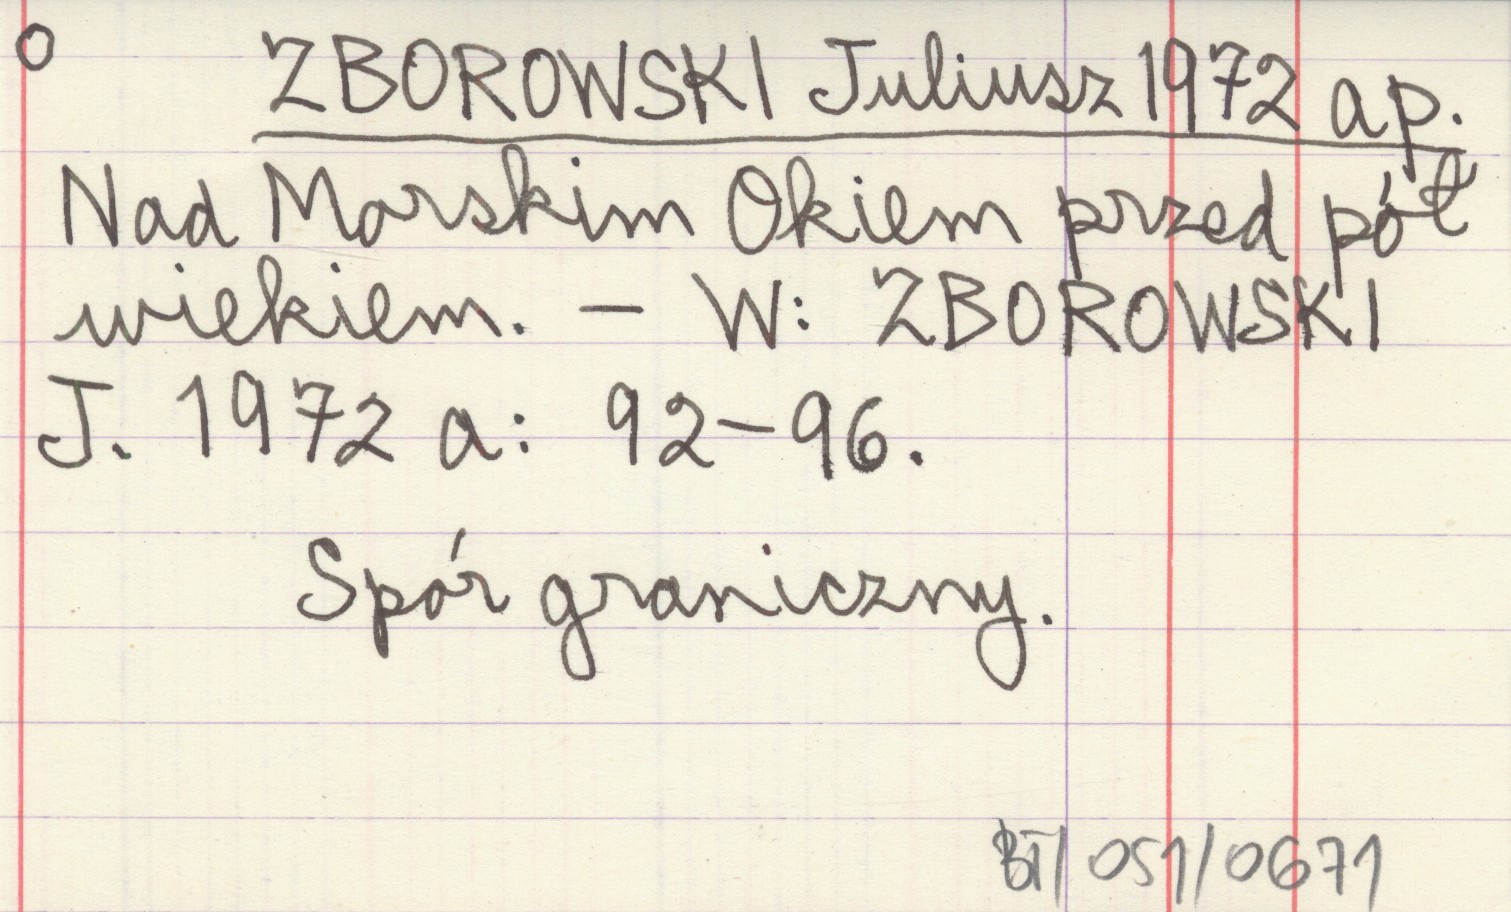 O ZBOROWSKI Juliusz 1972 ap.
Nad Morskim Okiem przed pół
wiekiem. – W: ZBOROWSKI
J. 1972 a: 92–96.
Spór graniczny.
BT/051/0671